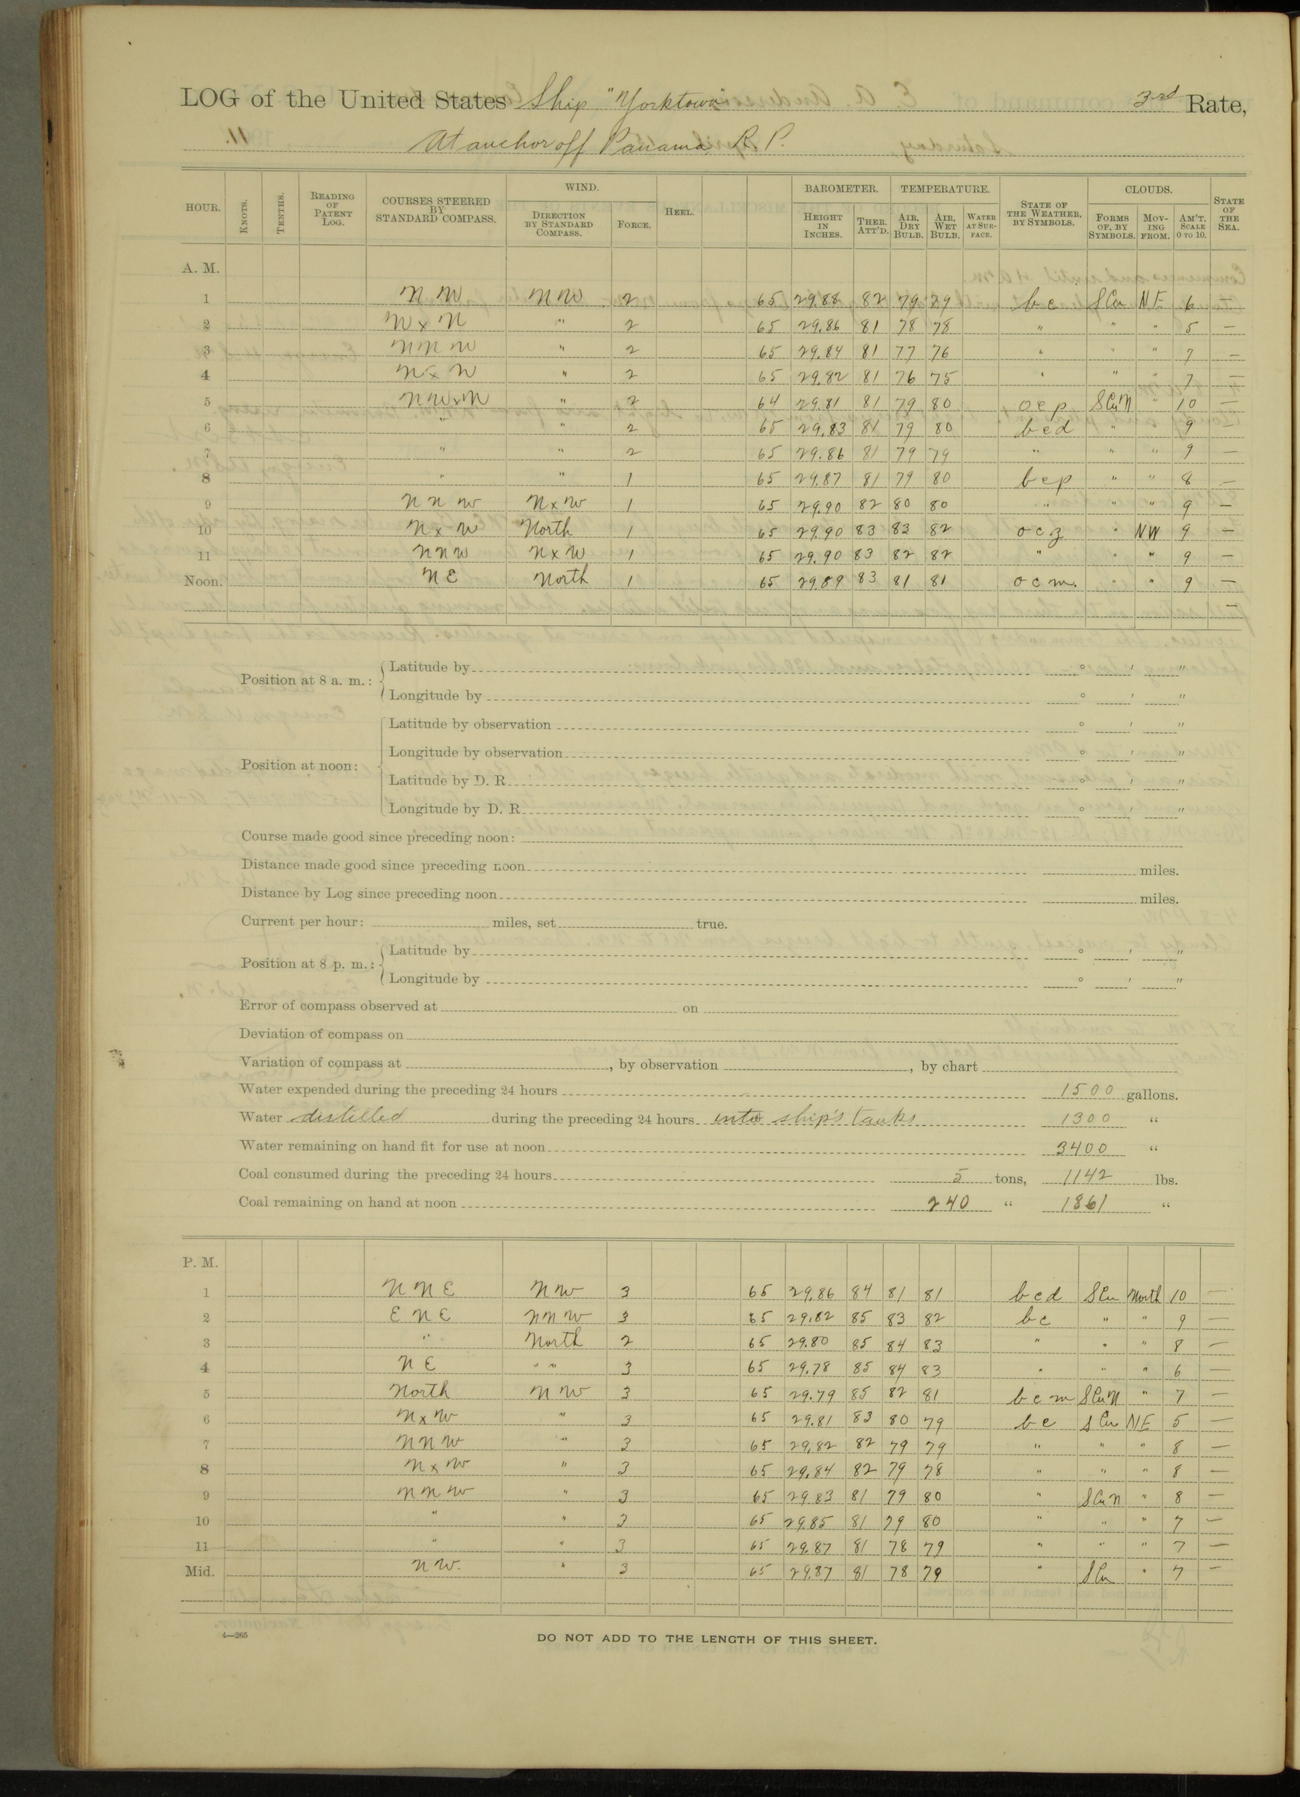 LOG of the United States Ship "Yorktown" 3rd Rate,
At anchor off Panama, R. P.
HOUR. KNOTS. TENTHS. READING OF PATENT LOG. COURSES STEERED BY STANDARD COMPASS. WIND. DIRECTION BY STANDARD COMPASS. FORCE. HEEL. BAROMETER. HEIGHT IN INCHES. THER. ATT'D. TEMPERATURE. AIR, DRY BULB. AIR, WET BULB. WATER AT SURFACE. STATE OF THE WEATHER, BY SYMBOLS. CLOUDS. FORMS OF, BY SYMBOLS. MOVING FROM. AM'T. SCALE 0 TO 10. STATE OF THE SEA.
A. M.
1 NW NW 2 65 29.88 82 79 79 bc SCu NE 6 —
2 WxN " 2 65 29.86 81 78 78 " " " 5 —
3 NNW " 2 65 29.84 81 77 76 " " " 7 —
4 NxW " 2 65 29.82 81 76 75 " " " 7 —
5 NWxN " 2 64 29.81 81 79 80 ocp SCuN " 10 —
6 " " 2 65 29.83 81 79 80 bcd " " 9
7 " " 2 65 29.86 81 79 79 " " " 9 —
8 " " 1 65 29.87 81 79 80 bcp " " 8 —
9 NNW NxW 1 65 29.90 82 80 80 " " " 9 —
10 NxW North 1 65 29.90 83 83 82 ocz " NW 9 —
11 NNW NxW 1 65 29.90 83 82 82 " " " 9 —
Noon. NE North 1 65 29.89 83 81 81 ocm. " " 9 —
Position at 8 a. m.: Latitude by ° ' "
Longitude by ° ' "
Position at noon: Latitude by observation ° ' "
Longitude by observation ° ' "
Latitude by D. R. ° ' "
Longitude by D. R. ° ' "
Course made good since preceding noon:
Distance made good since preceding noon miles.
Distance by Log since preceding noon miles.
Current per hour: miles, set true.
Position at 8 p. m.: Latitude by ° ' "
Longitude by ° ' "
Error of compass observed at on
Deviation of compass on
Variation of compass at , by observation , by chart
Water expended during the preceding 24 hours 1500 gallons.
Water distilled during the preceding 24 hours into ship's tanks 1300 "
Water remaining on hand fit for use at noon 3400 "
Coal consumed during the preceding 24 hours 5 tons, 1142 lbs.
Coal remaining on hand at noon 240 " 1861 "
P. M.
1 NNE NW 3 65 29.86 84 81 81 bcd SCu North 10 —
2 ENE NNW 3 65 29.82 85 83 82 bc " " 9 —
3 " North 2 65 29.80 85 84 83 " " " 8 —
4 NE " " 3 65 29.78 85 84 83 " " " 6 —
5 North NW 3 65 29.79 85 82 81 bcm SCuN " 7 —
6 NxW " 3 65 29.81 83 80 79 bc SCu NE 5 —
7 NNW " 3 65 29.82 82 79 79 " " " 8 —
8 NxW " 3 65 29.84 82 79 78 " " " 8 —
9 NNW " 3 65 29.83 81 79 80 " SCuN " 8 —
10 " " 3 65 29.85 81 79 80 " " " 7 —
11 " " 3 65 29.87 81 78 79 " " " 7 —
Mid. NW. " 3 65 29.87 81 78 79 " SCu " 7 —
4—265
DO NOT ADD TO THE LENGTH OF THIS SHEET.